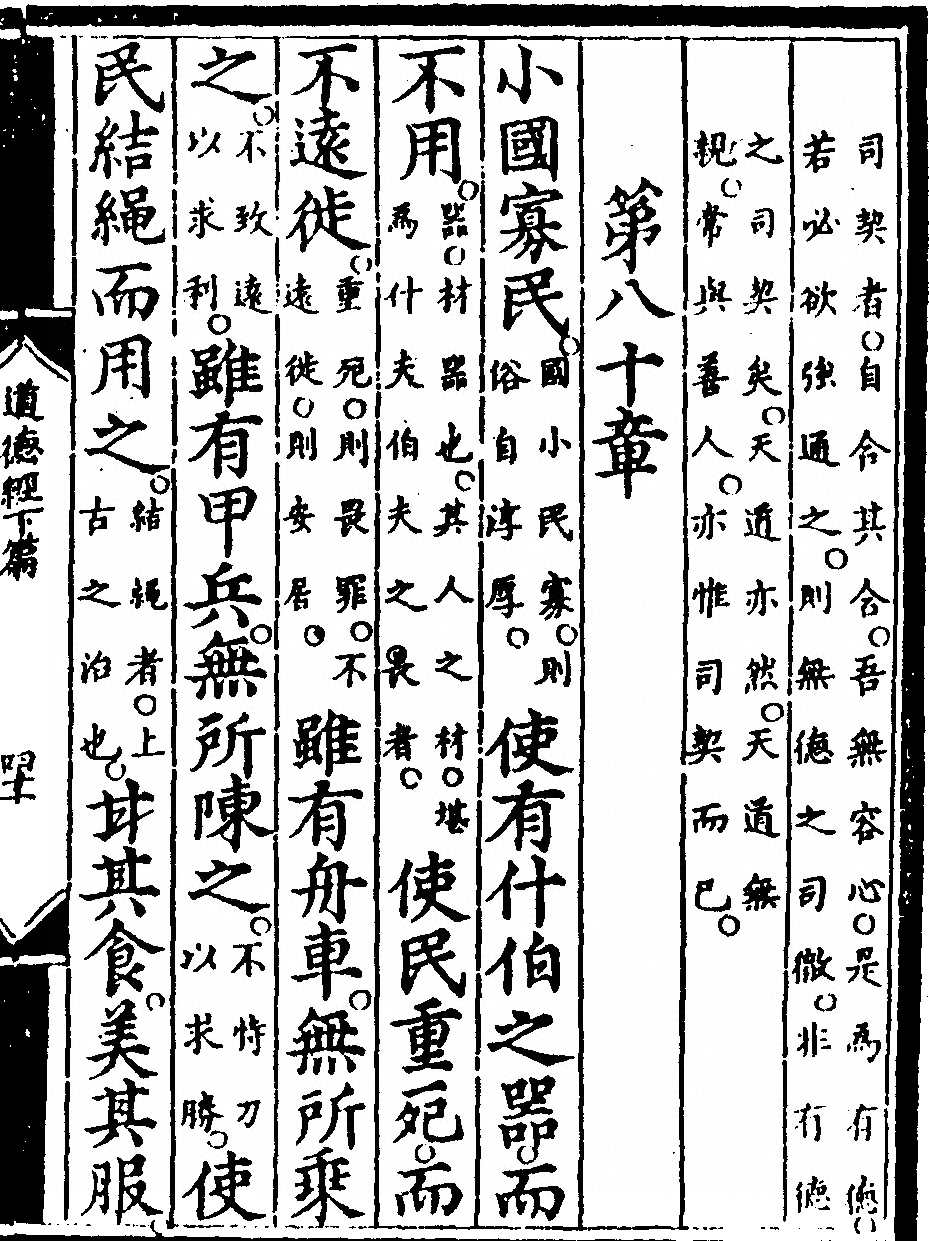 司契者自合其合吾無容心是為有德
若必欲強通之則無德之司徹非有德
之司契矣天道亦然天道無
親常與善人亦惟司契而已
第八十章
小國寡民國小民寡則俗自淳厚使有什伯之器而
不用器材器也其人之材堪為什夫伯夫之畏者使民重死而
不遠徙重死則畏罪不遠徙則安居雖有舟車無所乘
之不致遠以求利雖有甲兵無所陳之不恃刀以求勝使
民結繩而用之結繩者上古之治也甘其食美其服
道德經下篇